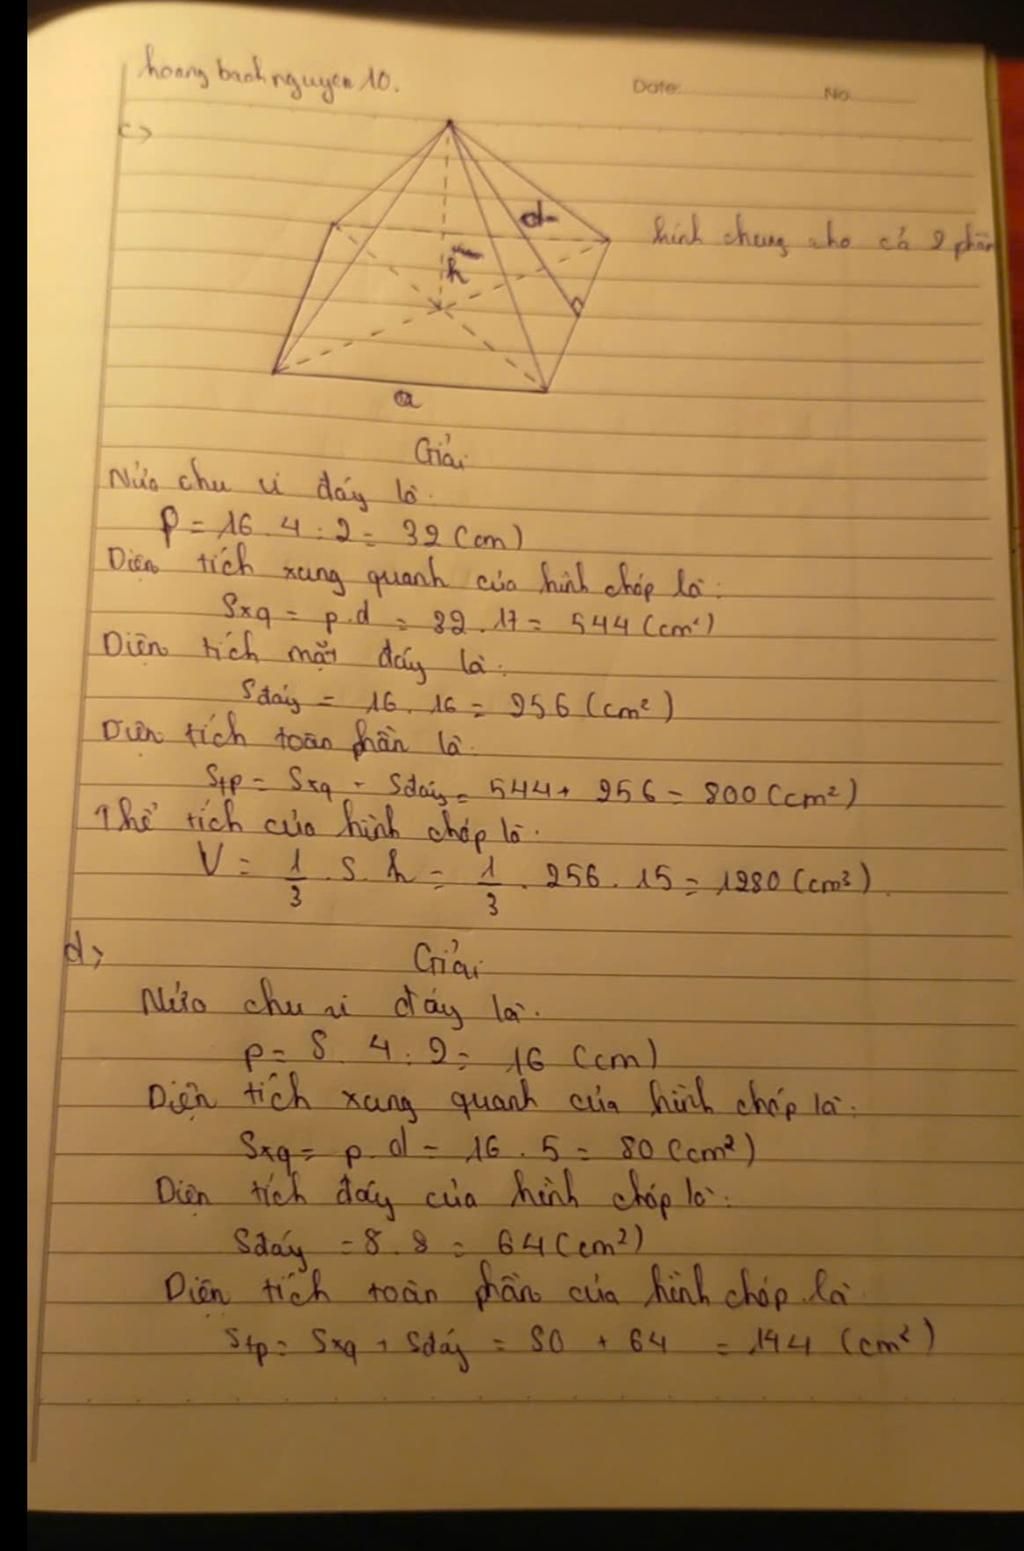 hoangbachnguyen10.
Date: No
c>
d
hình chung cho cả 2 phần
h
a
Giải
Nửa chu vi đáy là:
P = 16 . 4 : 2 = 32 (cm)
Diện tích xung quanh của hình chóp là:
Sxq = p.d = 32 . 17 = 544 (cm²)
Diện tích mặt đáy là:
Sđáy = 16 . 16 = 256 (cm²)
Diện tích toàn phần là:
Stp = Sxq - Sđáy = 544 + 256 = 800 (cm²)
Thể tích của hình chóp là:
V = 1/3 . S . h = 1/3 . 256 . 15 = 1280 (cm³)
d>
Giải
Nửa chu vi đáy là:
p = 8 . 4 : 2 = 16 (cm)
Diện tích xung quanh của hình chóp là:
Sxq = p.d = 16 . 5 = 80 (cm²)
Diện tích đáy của hình chóp là:
Sđáy = 8 . 8 = 64 (cm²)
Diện tích toàn phần của hình chóp là
Stp = Sxq + Sđáy = 80 + 64 = 144 (cm²)